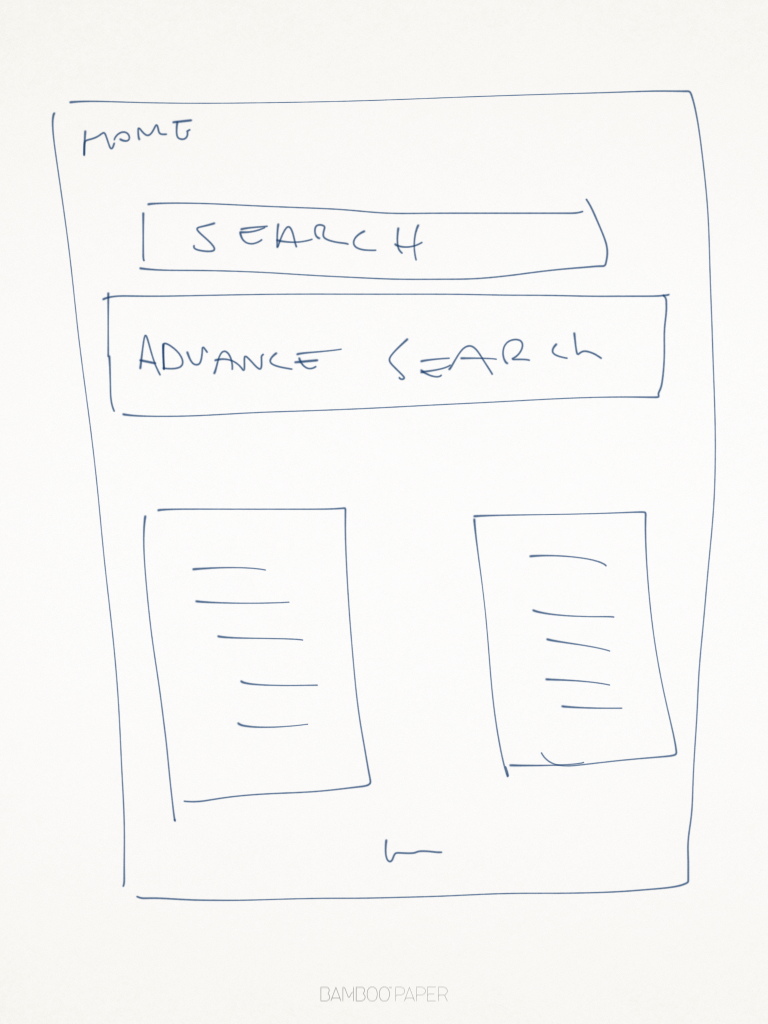 HOME
SEARCH
ADVANCE SEARCh
BAMBOO PAPER